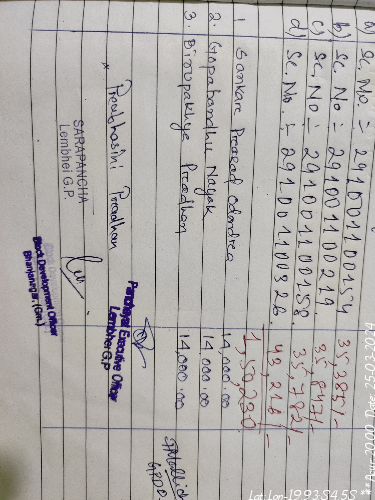 a) Sc. No = 29100110015 4 35,385/-
b) Sc. No = 29100110021 9 35,847/-
c) Sc. No = 29100110015 8 35,782/-
d) Sc. No. = 29100110032 6. 43,216/-
1,50,230
1 Sankar Prasad 14,000.00
2. Gopabandhu Nayak 14,000.00
3. Birupakhya Pradhan 14,000.00
Prabhasini Pradhan
SARAPANCHA
Lembhei G.P.
Panchayat Executive Officer
Lembhei G.P
Block Development Officer
Bhanjanagar, (Gm.)